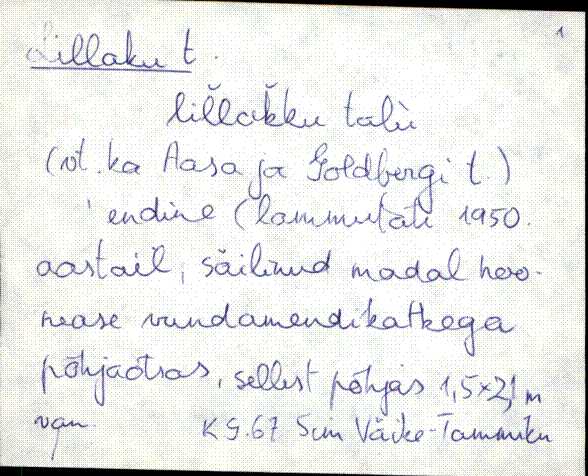 1
Lillaku t.
lil̆lak̆ku talù
(vt. ka Aasa ja Goldbergi t.)
endine (lammutati 1950.
aastail, säilinud madal hoo-
nease vundamendikatkega
põhjaotsas, sellest põhjas 1,5×2,1 m
van. KG. 67 Sim Väike-Tammiku